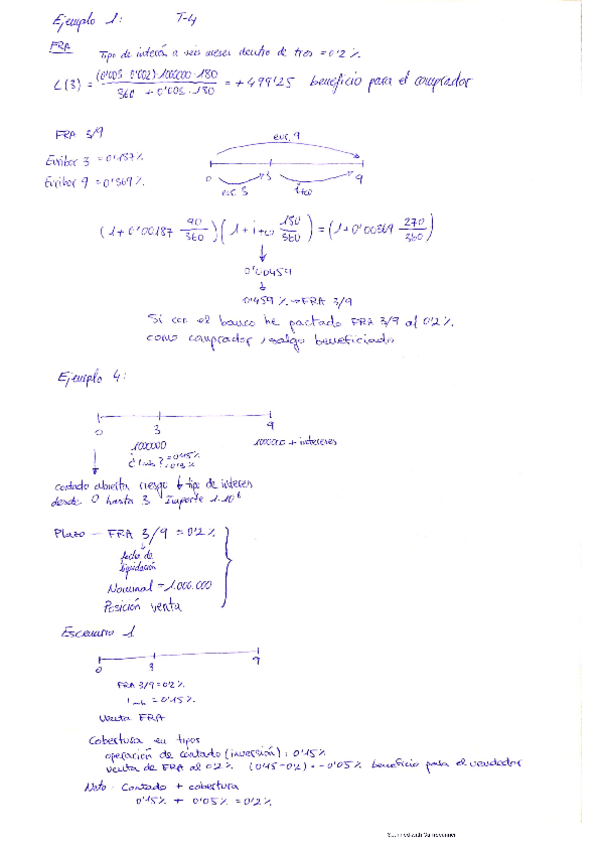 Ejemplo 1: T-4
FRA Tipo de interés a seis meses dentro de tres = 0'2 %
L(3) = (0'003 - 0'002) 1000000 · 180 / 360 + 0'003 · 180 = + 499'25 beneficio para el comprador
FRA 3/9
eur. 9
Euribor 3 = 0'187 %
Euribor 9 = 0'369 %
0 3 9
eur. 3
(1 + 0'00187 90/360) (1 + i 180/360) = (1 + 0'00369 270/360)
0'00459
0'459 % → FRA 3/9
Si con el banco he pactado FRA 3/9 al 0'2 %
como comprador, salgo beneficiado
Ejemplo 4:
0 3 9
1000000 1000000 + intereses
= 0'15 %
contado abierta riesgo ↓ tipo de interes
desde 0 hasta 3 Importe 1·10⁶
Plazo - FRA 3/9 = 0'2 %
fecha de
liquidación
Nominal = 1.000.000
Posición venta
Escenario 1
0 3 9
FRA 3/9 = 0'2 %
= 0'15 %
Venta FRA
Cobertura en tipos
operación de contado (inversión): 0'15 %
venta de FRA al 0'2 % (0'15 - 0'2) = - 0'05 % beneficio para el vendedor
Neto · Contado + cobertura
0'15 % + 0'05 % = 0'2 %